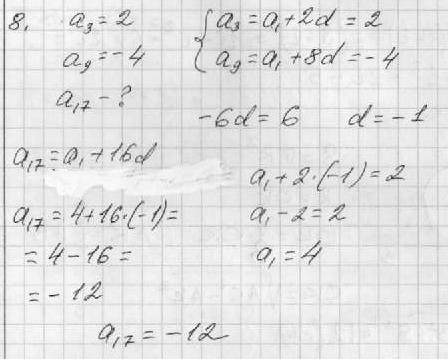 8. a₃ = 2
a₉ = -4
a₁₇ - ?
{ a₃ = a₁ + 2d = 2
a₉ = a₁ + 8d = -4
-6d = 6 d = -1
a₁₇ = a₁ + 16d
a₁₇ = 4 + 16·(-1) =
= 4 - 16 =
= -12
a₁ + 2·(-1) = 2
a₁ - 2 = 2
a₁ = 4
a₁₇ = -12